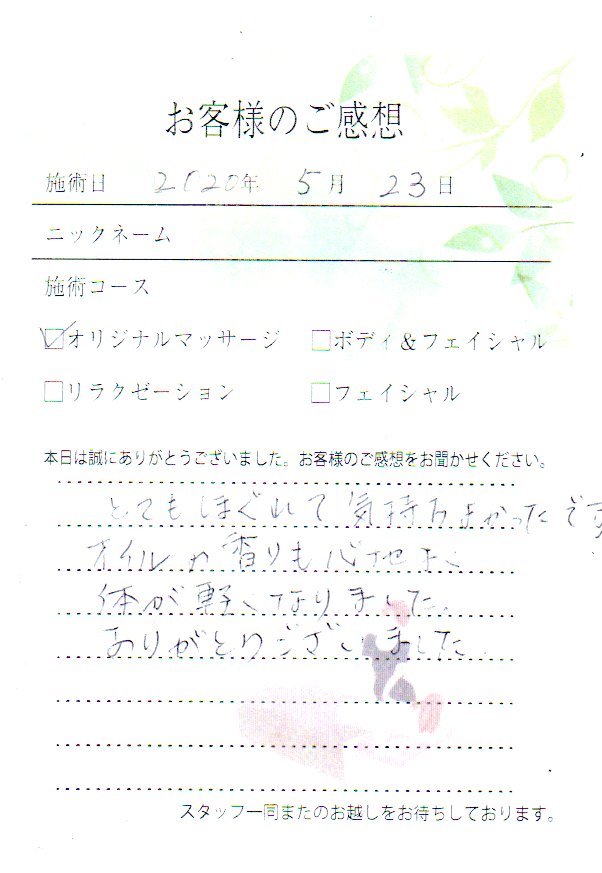 お客様のご感想
施術日 2020年 5月 23日
ニックネーム
施術コース
オリジナルマッサージ ボディ&フェイシャル
リラクゼーション フェイシャル
本日は誠にありがとうございました。お客様のご感想をお聞かせください。
とてもほぐれて気持ちよかったです
オイルの香りも心地よく
体が軽くなりました。
ありがとうございました
スタッフ一同またのお越しをお待ちしております。